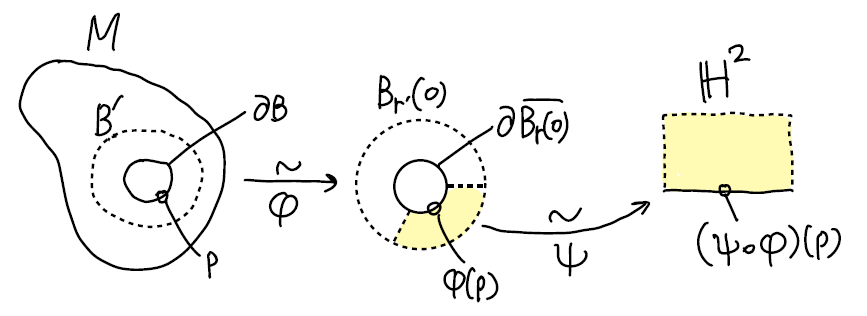 M
B′
∂B
p
~
φ
B_{r′}(0)
∂\overline{B_r(0)}
φ(p)
~
ψ
ℍ²
(ψ∘φ)(p)